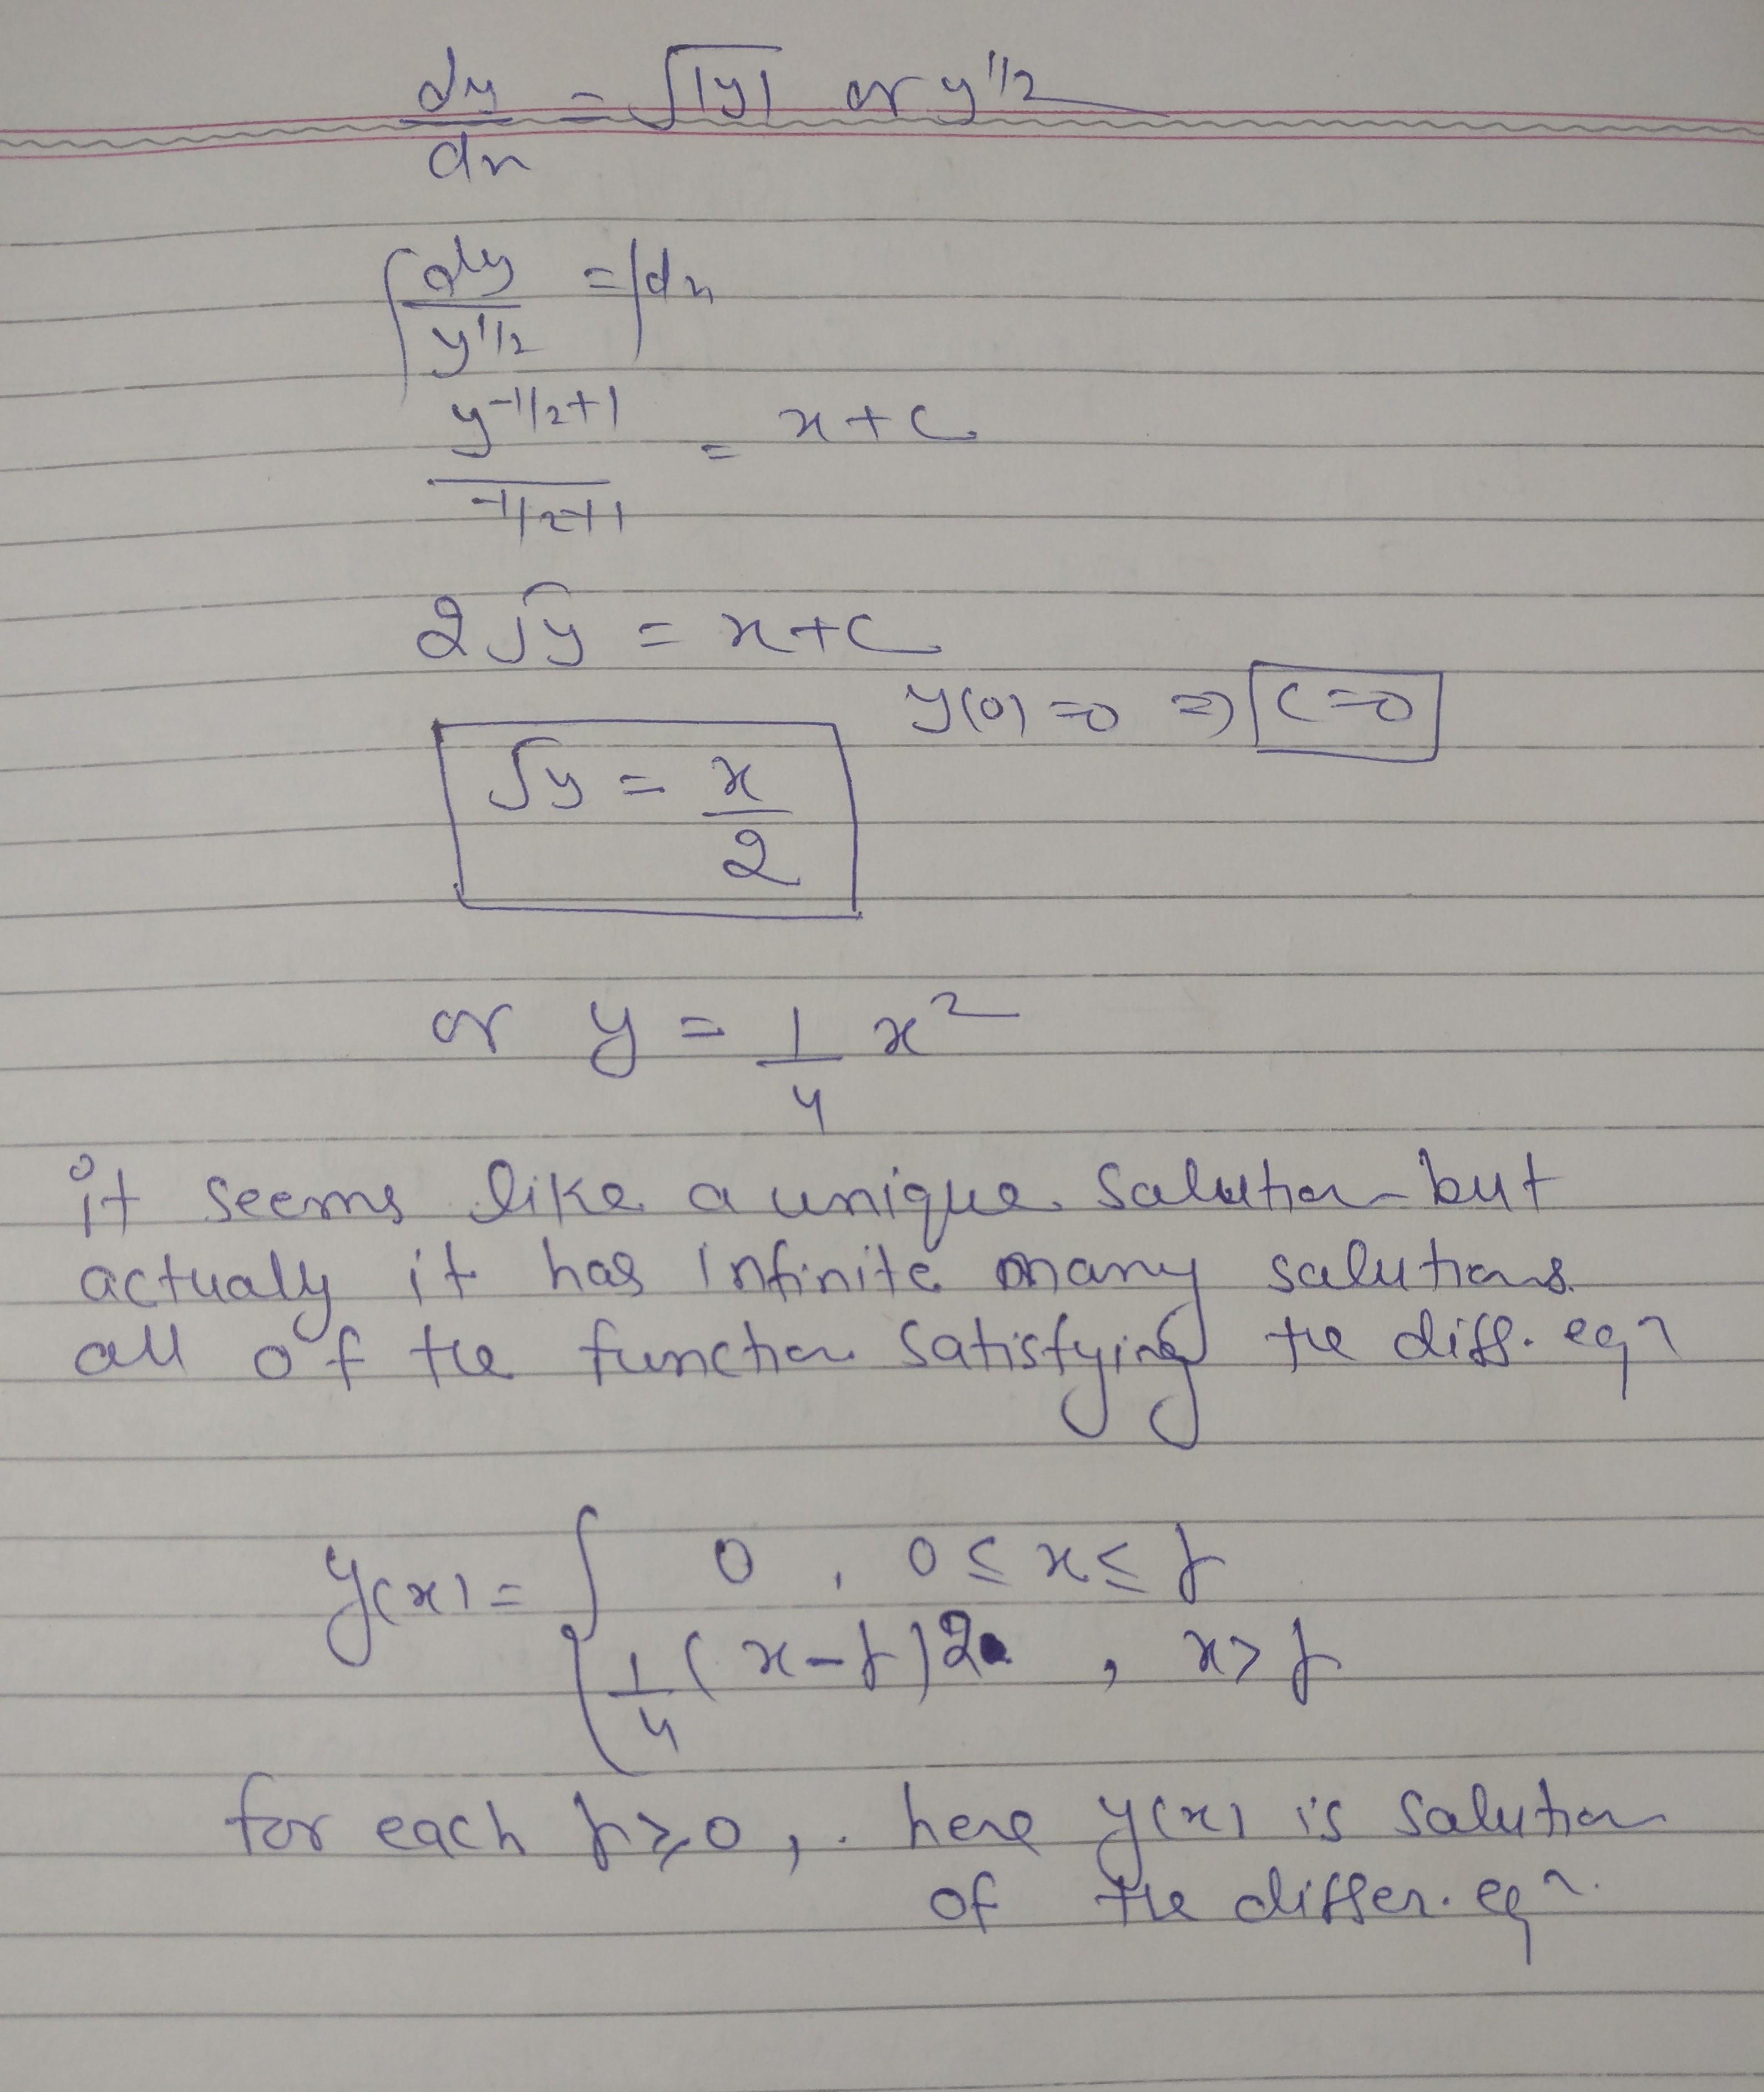 dy/dx = √|y| or y^1/2
∫ dy/y^1/2 = ∫dx
y^-1/2+1 / -1/2+1 = x+c
2√y = x+c
y(0)=0 ⇒ c=0
√y = x/2
or y = 1/4 x^2
it seems like a unique solution but
actually it has infinite many solutions.
all of the function satisfying the diff. eqn
y(x) = { 0 , 0 ≤ x ≤ r
1/4 (x-r)2 , x > r
for each r ≥ 0, . here y(x) is solution
of the differ. eqn.